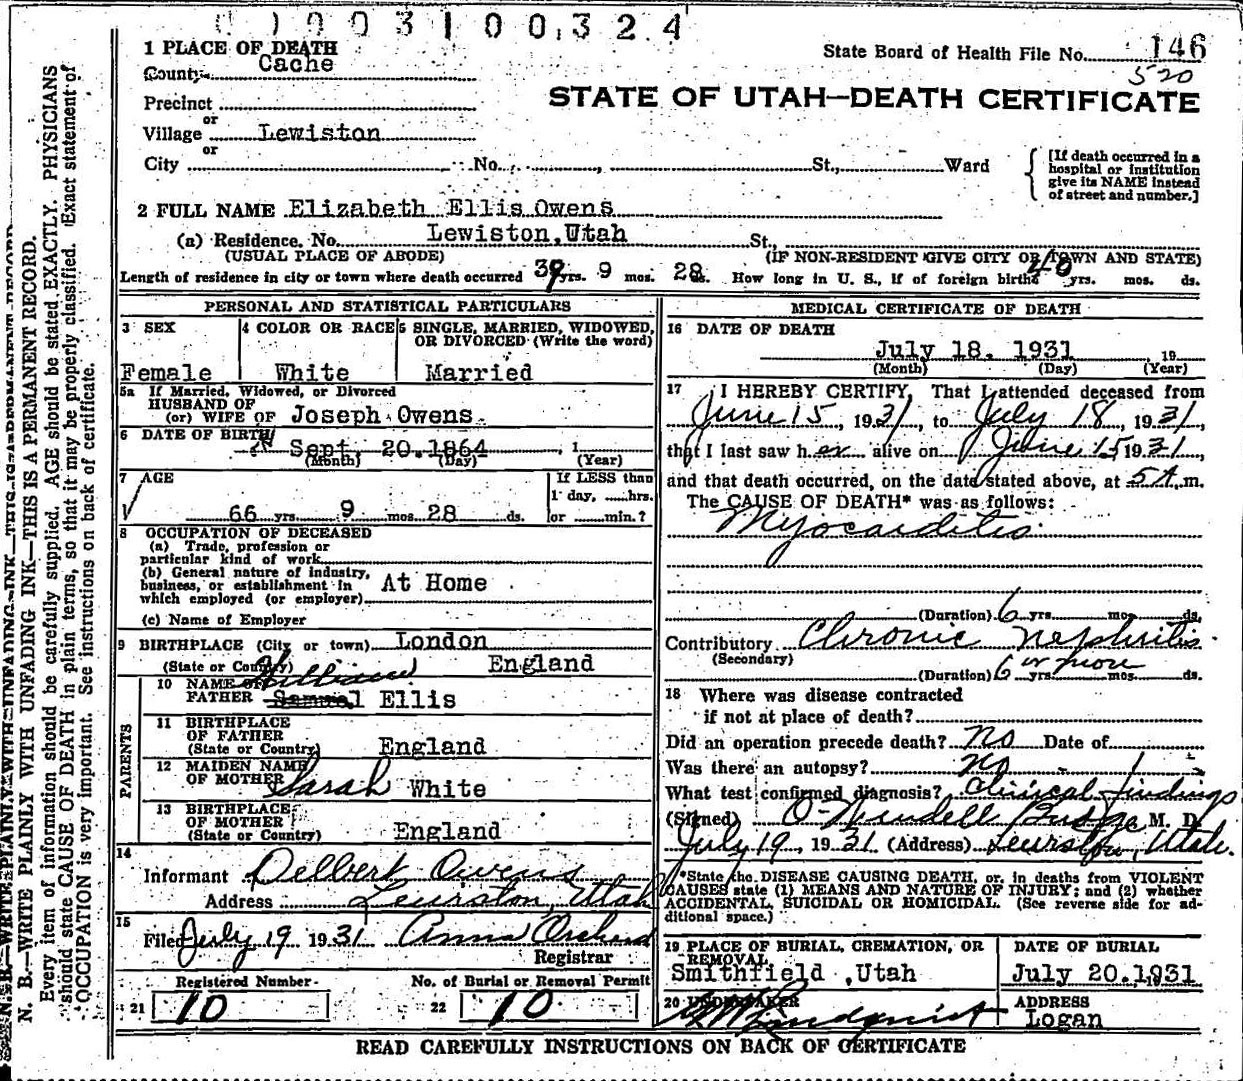 0 1 0 0 3 1 0 0 3 2 4
1 PLACE OF DEATH
County Cache
State Board of Health File No. 146
520
Precinct
or
Village Lewiston
or
City No. , St., Ward
STATE OF UTAH—DEATH CERTIFICATE
[If death occurred in a hospital or institution give its NAME instead of street and number.]
2 FULL NAME Elizabeth Ellis Owens
(a) Residence. No. Lewiston, Utah St.,
(USUAL PLACE OF ABODE) (IF NON-RESIDENT GIVE CITY OR TOWN AND STATE)
Length of residence in city or town where death occurred 39 yrs. 9 mos. 28 ds. How long in U. S., if of foreign birth? 40 yrs. mos. ds.
PERSONAL AND STATISTICAL PARTICULARS
3 SEX
Female
4 COLOR OR RACE
White
5 SINGLE, MARRIED, WIDOWED, OR DIVORCED (Write the word)
Married
5a If Married, Widowed, or Divorced
HUSBAND OF
(or) WIFE OF Joseph Owens
6 DATE OF BIRTH
Sept. 20. 1864 , 1
(Month) (Day) (Year)
7 AGE
66 yrs. 9 mos. 28 ds.
If LESS than
1 day, ......hrs.
or .......min.?
8 OCCUPATION OF DECEASED
(a) Trade, profession or
particular kind of work
(b) General nature of industry,
business, or establishment in
which employed (or employer) At Home
(c) Name of Employer
9 BIRTHPLACE (City or town) London
(State or Country) England
PARENTS
10 NAME OF
FATHER William Samuel Ellis
11 BIRTHPLACE
OF FATHER
(State or Country) England
12 MAIDEN NAME
OF MOTHER Sarah White
13 BIRTHPLACE
OF MOTHER
(State or Country) England
14
Informant Delbert Owens
Address Lewiston, Utah
15
Filed July 19 1931 Anna
Registrar
Registered Number
21 10
No. of Burial or Removal Permit
22 10
MEDICAL CERTIFICATE OF DEATH
16 DATE OF DEATH
July 18. 1931 , 19
(Month) (Day) (Year)
17 I HEREBY CERTIFY, That I attended deceased from
June 15, 1931, to July 18, 1931,
that I last saw her alive on June 15 1931,
and that death occurred, on the date stated above, at 5 A. m.
The CAUSE OF DEATH* was as follows:
Myocarditis
(Duration) 6 yrs. mos. ds.
Contributory Chronic nephritis
(Secondary)
(Duration) 6 or more yrs. mos. ds.
18 Where was disease contracted
if not at place of death?
Did an operation precede death? no Date of
Was there an autopsy? no
What test confirmed diagnosis? Clinical findings
(Signed) O Wendell Budge M. D.
July 19, 1931 (Address) Lewiston, Utah.
*State the DISEASE CAUSING DEATH, or, in deaths from VIOLENT
CAUSES state (1) MEANS AND NATURE OF INJURY; and (2) whether
ACCIDENTAL, SUICIDAL OR HOMICIDAL. (See reverse side for ad-
ditional space.)
19 PLACE OF BURIAL, CREMATION, OR
REMOVAL
Smithfield , Utah
DATE OF BURIAL
July 20. 1931
20 UNDERTAKER
Lindquist
ADDRESS
Logan
READ CAREFULLY INSTRUCTIONS ON BACK OF CERTIFICATE
N. B.—WRITE PLAINLY WITH UNFADING INK—THIS IS A PERMANENT RECORD.
Every item of information should be carefully supplied. AGE should be stated EXACTLY. PHYSICIANS
should state CAUSE OF DEATH in plain terms, so that it may be properly classified. Exact statement of
OCCUPATION is very important. See instructions on back of certificate.